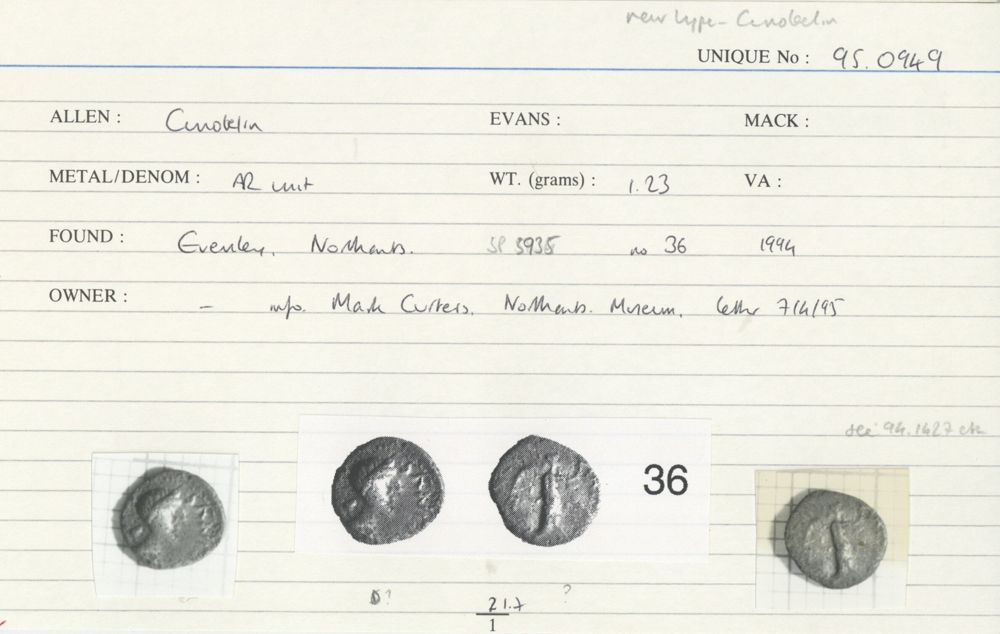 new type - Cunobelin
UNIQUE No : 95.0949
ALLEN : Cunobelin EVANS : MACK :
METAL/DENOM : AR unit WT. (grams) : 1.23 VA :
FOUND : Evenley, Northants. SP 5935 no 36 1994
OWNER : - info. Mark Curteis, Northants. Museum, letter 7/4/95
see 94.1427 etc
36
? 21.7 ?
1